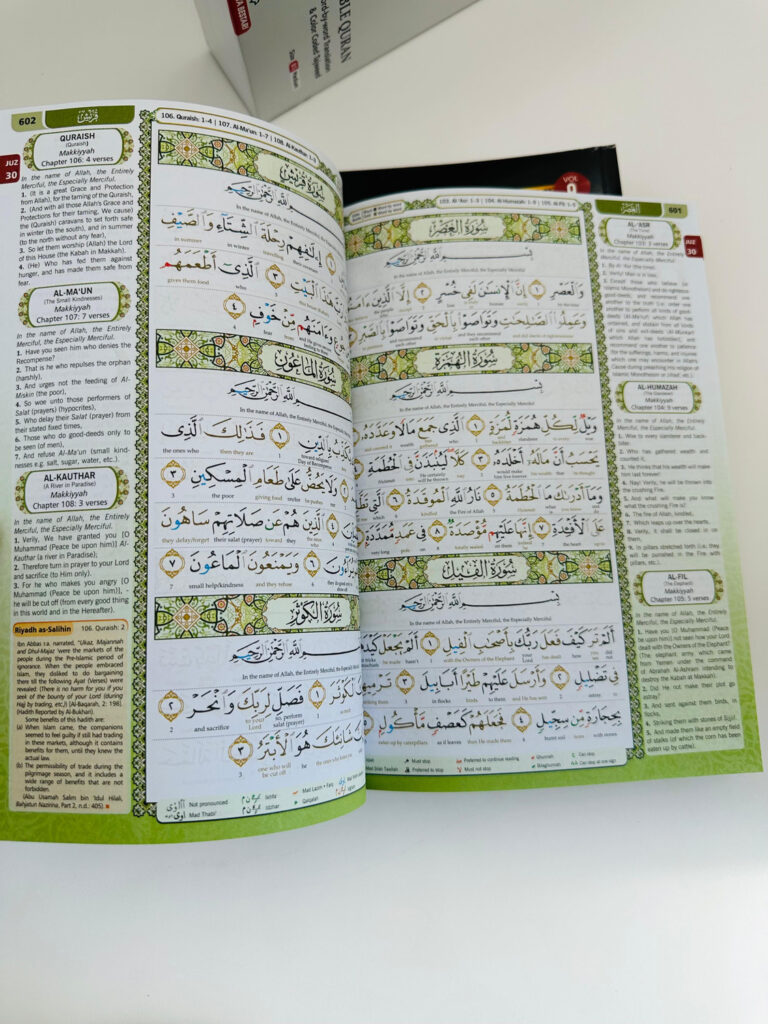 BESTARI
BLE QURAN
word-by-word Translation
& Color Coded Tajweed
VOL
1
602
قُرَيْش
JUZ
30
QURAISH
(Quraish)
Makkiyyah
Chapter 106: 4 verses
In the name of Allah, the Entirely
Merciful, the Especially Merciful.
1. (It is a great Grace and Protection
from Allah), for the taming of the Quraish,
2. (And with all those Allah's Grace and
Protections for their taming, We cause)
the (Quraish) caravans to set forth safe
in winter (to the south), and in summer
(to the north without any fear),
3. So let them worship (Allah) the Lord
of this House (the Kabah in Makkah).
4. (He) Who has fed them against
hunger, and has made them safe from
fear.
AL-MA'UN
(The Small Kindnesses)
Makkiyyah
Chapter 107: 7 verses
In the name of Allah, the Entirely
Merciful, the Especially Merciful.
1. Have you seen him who denies the
Recompense?
2. That is he who repulses the orphan
(harshly),
3. And urges not the feeding of Al-
Miskin (the poor),
4. So woe unto those performers of
Salat (prayers) (hypocrites),
5. Who delay their Salat (prayer) from
their stated fixed times,
6. Those who do good-deeds only to
be seen (of men),
7. And refuse Al-Ma'un (small kind-
nesses e.g. salt, sugar, water, etc.).
AL-KAUTHAR
(A River in Paradise)
Makkiyyah
Chapter 108: 3 verses
In the name of Allah, the Entirely
Merciful, the Especially Merciful.
1. Verily, We have granted you [O
Muhammad (Peace be upon him)] Al-
Kauthar (a river in Paradise);
2. Therefore turn in prayer to your Lord
and sacrifice (to Him only).
3. For he who makes you angry [O
Muhammad (Peace be upon him)], -
he will be cut off (from every good thing
in this world and in the Hereafter).
Riyadh as-Salihin 106. Quraish: 2
Ibn Abbas r.a. narrated, "Ukaz, Majannah
and Dhul-Majaz were the markets of the
people during the Pre-Islamic period of
ignorance. When the people embraced
Islam, they disliked to do bargaining
there till the following Ayat (Verses) were
revealed: (There is no harm for you if you
seek of the bounty of your Lord (during
Hajj by trading, etc.)) [Al-Baqarah, 2: 198].
(Hadith Reported by Al-Bukhari).
Some benefits of this hadith are:
(a) When Islam came, the companions
seemed to feel guilty if still had trading
in these markets, although it contains
benefits for them, until they knew the
actual law.
(b) The permissibility of trade during the
pilgrimage season, and it includes a
wide range of benefits that are not
forbidden.
(Abu Usamah Salim bin 'Idul Hilali,
Bahjatun Nazirina, Part 2, n.d.: 405).
106. Quraish: 1-4 | 107. Al-Ma'un: 1-7 | 108. Al-Kauthar: 1-3
سُورَةُ قُرَيْشٍ
بِسْمِ اللَّهِ الرَّحْمَٰنِ الرَّحِيمِ
In the name of Allah, the Entirely Merciful, the Especially
إِۦلَٰفِهِمْ رِحْلَةَ الشِّتَاءِ وَالصَّيْفِ
in summer in winter
هَٰذَا الْبَيْتِ ٣ الَّذِي أَطْعَمَهُم
gives them food who
وَءَامَنَهُم مِّنْ خَوْفٍ ٤
4 fear from
سُورَةُ الْمَاعُونِ
بِسْمِ اللَّهِ الرَّحْمَٰنِ الرَّحِيمِ
In the name of Allah, the Entirely Merciful, the Especially Merciful
بِالدِّينِ ١ فَذَٰلِكَ الَّذِي
the ones who then they are 1 Day of Recompense
وَلَا يَحُضُّ عَلَىٰ طَعَامِ الْمِسْكِينِ ٣
3 the poor giving food
الَّذِينَ هُمْ عَن صَلَاتِهِمْ سَاهُونَ
they delay/forget their salat (prayer) toward they the ones who
٦ وَيَمْنَعُونَ الْمَاعُونَ ٧
7 small help/kindness and they refuse 6
سُورَةُ الْكَوْثَرِ
بِسْمِ اللَّهِ الرَّحْمَٰنِ الرَّحِيمِ
In the name of Allah, the Entirely Merciful, the Especially
الْكَوْثَرَ ١ فَصَلِّ لِرَبِّكَ وَانْحَرْ ٢
2 and sacrifice to your Lord so, perform salat (prayer) 1
شَانِئَكَ هُوَ الْأَبْتَرُ ٣
3 one who will be cut off he
Not pronounced
Mad Thabi'i
Izhar
Qalqalah
Mad Lazim
103. Al-'Asr: 1-3 | 104. Al-Humazah: 1-9 | 105. Al-Fil: 1-5
سُورَةُ الْعَصْرِ
بِسْمِ اللَّهِ الرَّحْمَٰنِ الرَّحِيمِ
In the name of Allah, the Entirely Merciful, the Especially Merciful
وَالْعَصْرِ ١ إِنَّ الْإِنسَٰنَ لَفِي خُسْرٍ ٢ إِلَّا الَّذِينَ ءَامَنُوا
وَعَمِلُوا الصَّٰلِحَٰتِ وَتَوَاصَوْا بِالْحَقِّ وَتَوَاصَوْا بِالصَّبْرِ
سُورَةُ الْهُمَزَةِ
بِسْمِ اللَّهِ الرَّحْمَٰنِ الرَّحِيمِ
In the name of Allah, the Entirely Merciful, the Especially Merciful
وَيْلٌ لِّكُلِّ هُمَزَةٍ لُّمَزَةٍ ١ الَّذِي جَمَعَ مَالًا وَعَدَّدَهُ
يَحْسَبُ أَنَّ مَالَهُ أَخْلَدَهُ ٣ كَلَّا لَيُنبَذَنَّ فِي الْحُطَمَةِ
وَمَا أَدْرَىٰكَ مَا الْحُطَمَةُ ٥ نَارُ اللَّهِ الْمُوقَدَةُ ٦ الَّتِي
عَلَى الْأَفْئِدَةِ ٧ إِنَّهَا عَلَيْهِم مُّؤْصَدَةٌ ٨ فِي عَمَدٍ مُّمَدَّدَةٍ
سُورَةُ الْفِيلِ
بِسْمِ اللَّهِ الرَّحْمَٰنِ الرَّحِيمِ
In the name of Allah, the Entirely Merciful, the Especially Merciful
أَلَمْ تَرَ كَيْفَ فَعَلَ رَبُّكَ بِأَصْحَٰبِ الْفِيلِ ١ أَلَمْ يَجْعَلْ كَيْدَهُمْ
with the Owners of the Elephant
فِي تَضْلِيلٍ ٢ وَأَرْسَلَ عَلَيْهِمْ طَيْرًا أَبَابِيلَ ٣ تَرْمِيهِم
in flocks birds to them and He was sent 2 astray
بِحِجَارَةٍ مِّن سِجِّيلٍ ٤ فَجَعَلَهُمْ كَعَصْفٍ مَّأْكُولٍ
eaten up by caterpillars as if leaves then He made them 4 burnt soil from with stones
Must stop
Preferred to stop
Preferred to continue reading
Must not stop
Ghunnah
Can stop
Can stop at one sign
العَصْر
601
JUZ
30
AL-'ASR
(The Time)
Makkiyyah
Chapter 103: 3 verses
In the name of Allah, the Entirely
Merciful, the Especially Merciful.
1. By Al-'Asr (the time).
2. Verily! Man is in loss,
3. Except those who believe (in
Islamic Monotheism) and do righteous
good-deeds, and recommend one
another to the truth (i.e. order one
another to perform all kinds of good-
deeds (Al-Ma'ruf) which Allah has
ordained, and abstain from all kinds
of sins and evil-deeds (Al-Munkar)
which Allah has forbidden), and
recommend one another to patience
(for the sufferings, harms, and injuries
which one may encounter in Allah's
Cause during preaching His religion of
Islamic Monotheism or Jihad, etc.).
AL-HUMAZAH
(The Slanderer)
Makkiyyah
Chapter 104: 9 verses
In the name of Allah, the Entirely
Merciful, the Especially Merciful.
1. Woe to every slanderer and back-
biter.
2. Who has gathered wealth and
counted it,
3. He thinks that his wealth will make
him last forever!
4. Nay! Verily, he will be thrown into
the crushing Fire.
5. And what will make you know
what the crushing Fire is?
6. The fire of Allah, kindled,
7. Which leaps up over the hearts,
8. Verily, it shall be closed in on
them,
9. In pillars stretched forth (i.e. they
will be punished in the Fire with
pillars, etc.).
AL-FIL
(The Elephant)
Makkiyyah
Chapter 105: 5 verses
In the name of Allah, the Entirely
Merciful, the Especially Merciful.
1. Have you [O Muhammad (Peace
be upon him)] not seen how your Lord
dealt with the Owners of the Elephant?
[The elephant army which came
from Yemen under the command
of Abrahah Al-Ashram intending to
destroy the Kabah at Makkah].
2. Did He not make their plot go
astray?
3. And sent against them birds, in
flocks,
4. Striking them with stones of Sijjil.
5. And made them like an empty field
of stalks (of which the corn has been
eaten up by cattle).